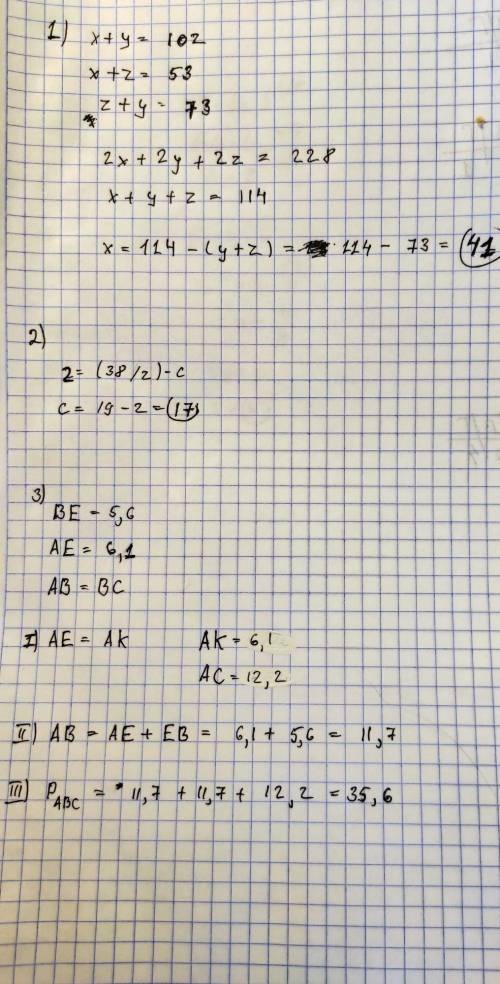 1) x+y= 102
x+z= 53
z+y= 73
2x+2y+2z = 228
x+y+z = 114
x=114-(y+z)= 114- 73= 41
2)
2= (38/2)-c
c= 19-2=17
3)
BE - 5,6
AE= 6,1
AB=BC
I) AE= AK AK=6,1
AC=12,2
II) AB = AE+EB= 6,1+ 5,6 = 11,7
III) P ABC = 11,7 +11,7+ 12,2 =35,6